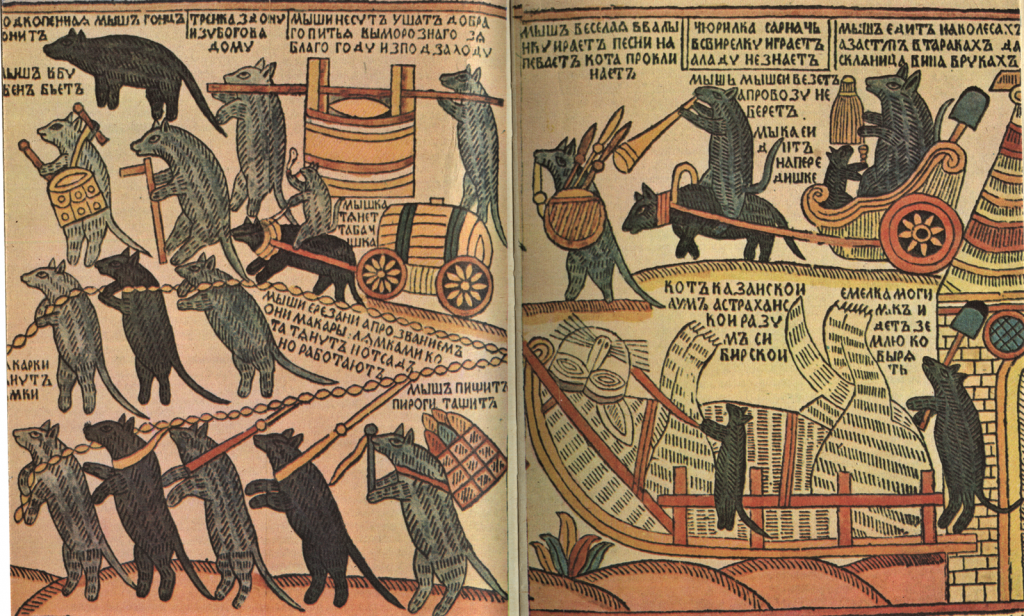 ОДКОПЕННАЯ МЫШЪ ГОНЦЪ
ОНИТЪ
ТРЕНКА ЗДОНУ
ИЗУБОГОВА
ДОМУ
МЫШИ НЕСУТЪ УШАТЪ ДОБРА
ГО ПИТЬЯ ВЫМОРОЗНАГО ЗА
БЛАГО ГОДУ ИЗПОД ЗАЛОДУ
МЫШЪ ВБУ
БЕНЪ БЬЕТЪ
МЫШКА
ТЯНЕТ
ТАБАЧ
ИШКА
МЫШИ ЕРЕЗАНИ АПРОЗВАНИЕМЪ
ОНИ МАКАРЫ ЛЯМКАМИ КО
ТА ТЯНУТЪ ПОТСАДЪ
НО РАБОТАЮТЪ
КАРКИ
НУТЪ
МКИ
МЫШЪ ПИЩИТЪ
ПИРОГИ ТАЩИТЪ
МЫШЪ ВЕСЕЛАЯ ВВАЛЫ
НКУ ИРАЕТЪ ПЕСНИ НА
ПЕВАЕТЪ КОТА ПРОКЛИ
НАЕТЪ
ЧЮРИЛКА САРНАЧЬ
ВСВИРЕЛКУ ИГРАЕТЪ
АЛАДУ НЕЗНАЕТЪ
МЫШЪ ЕДИТЪ НАКОЛЕСАХЪ
АЗАСТУПЪ ВТАРАКАХЪ ДА
СКЛАНИЦА ВИНА ВРУКАХЪ
МЫШЬ МЫШЕИ ВЕЗЕТЪ
АПРОВОЗУ НЕ
БЕРЕТЪ
МЫКА СИ
ДИТЪ
НАПЕРЕ
ДИШКЕ
КОТЪ КАЗАНСКОИ
УМЪ АСТРАХАНС
КОИ РАЗУ
МЪ СИ
БИРСКОИ
ЕМЕЛКА МОГИ
ЛЯКЪ И
ДЕТЪ ЗЕ
МЛЮ КО
БЫРЯ
ТЬ